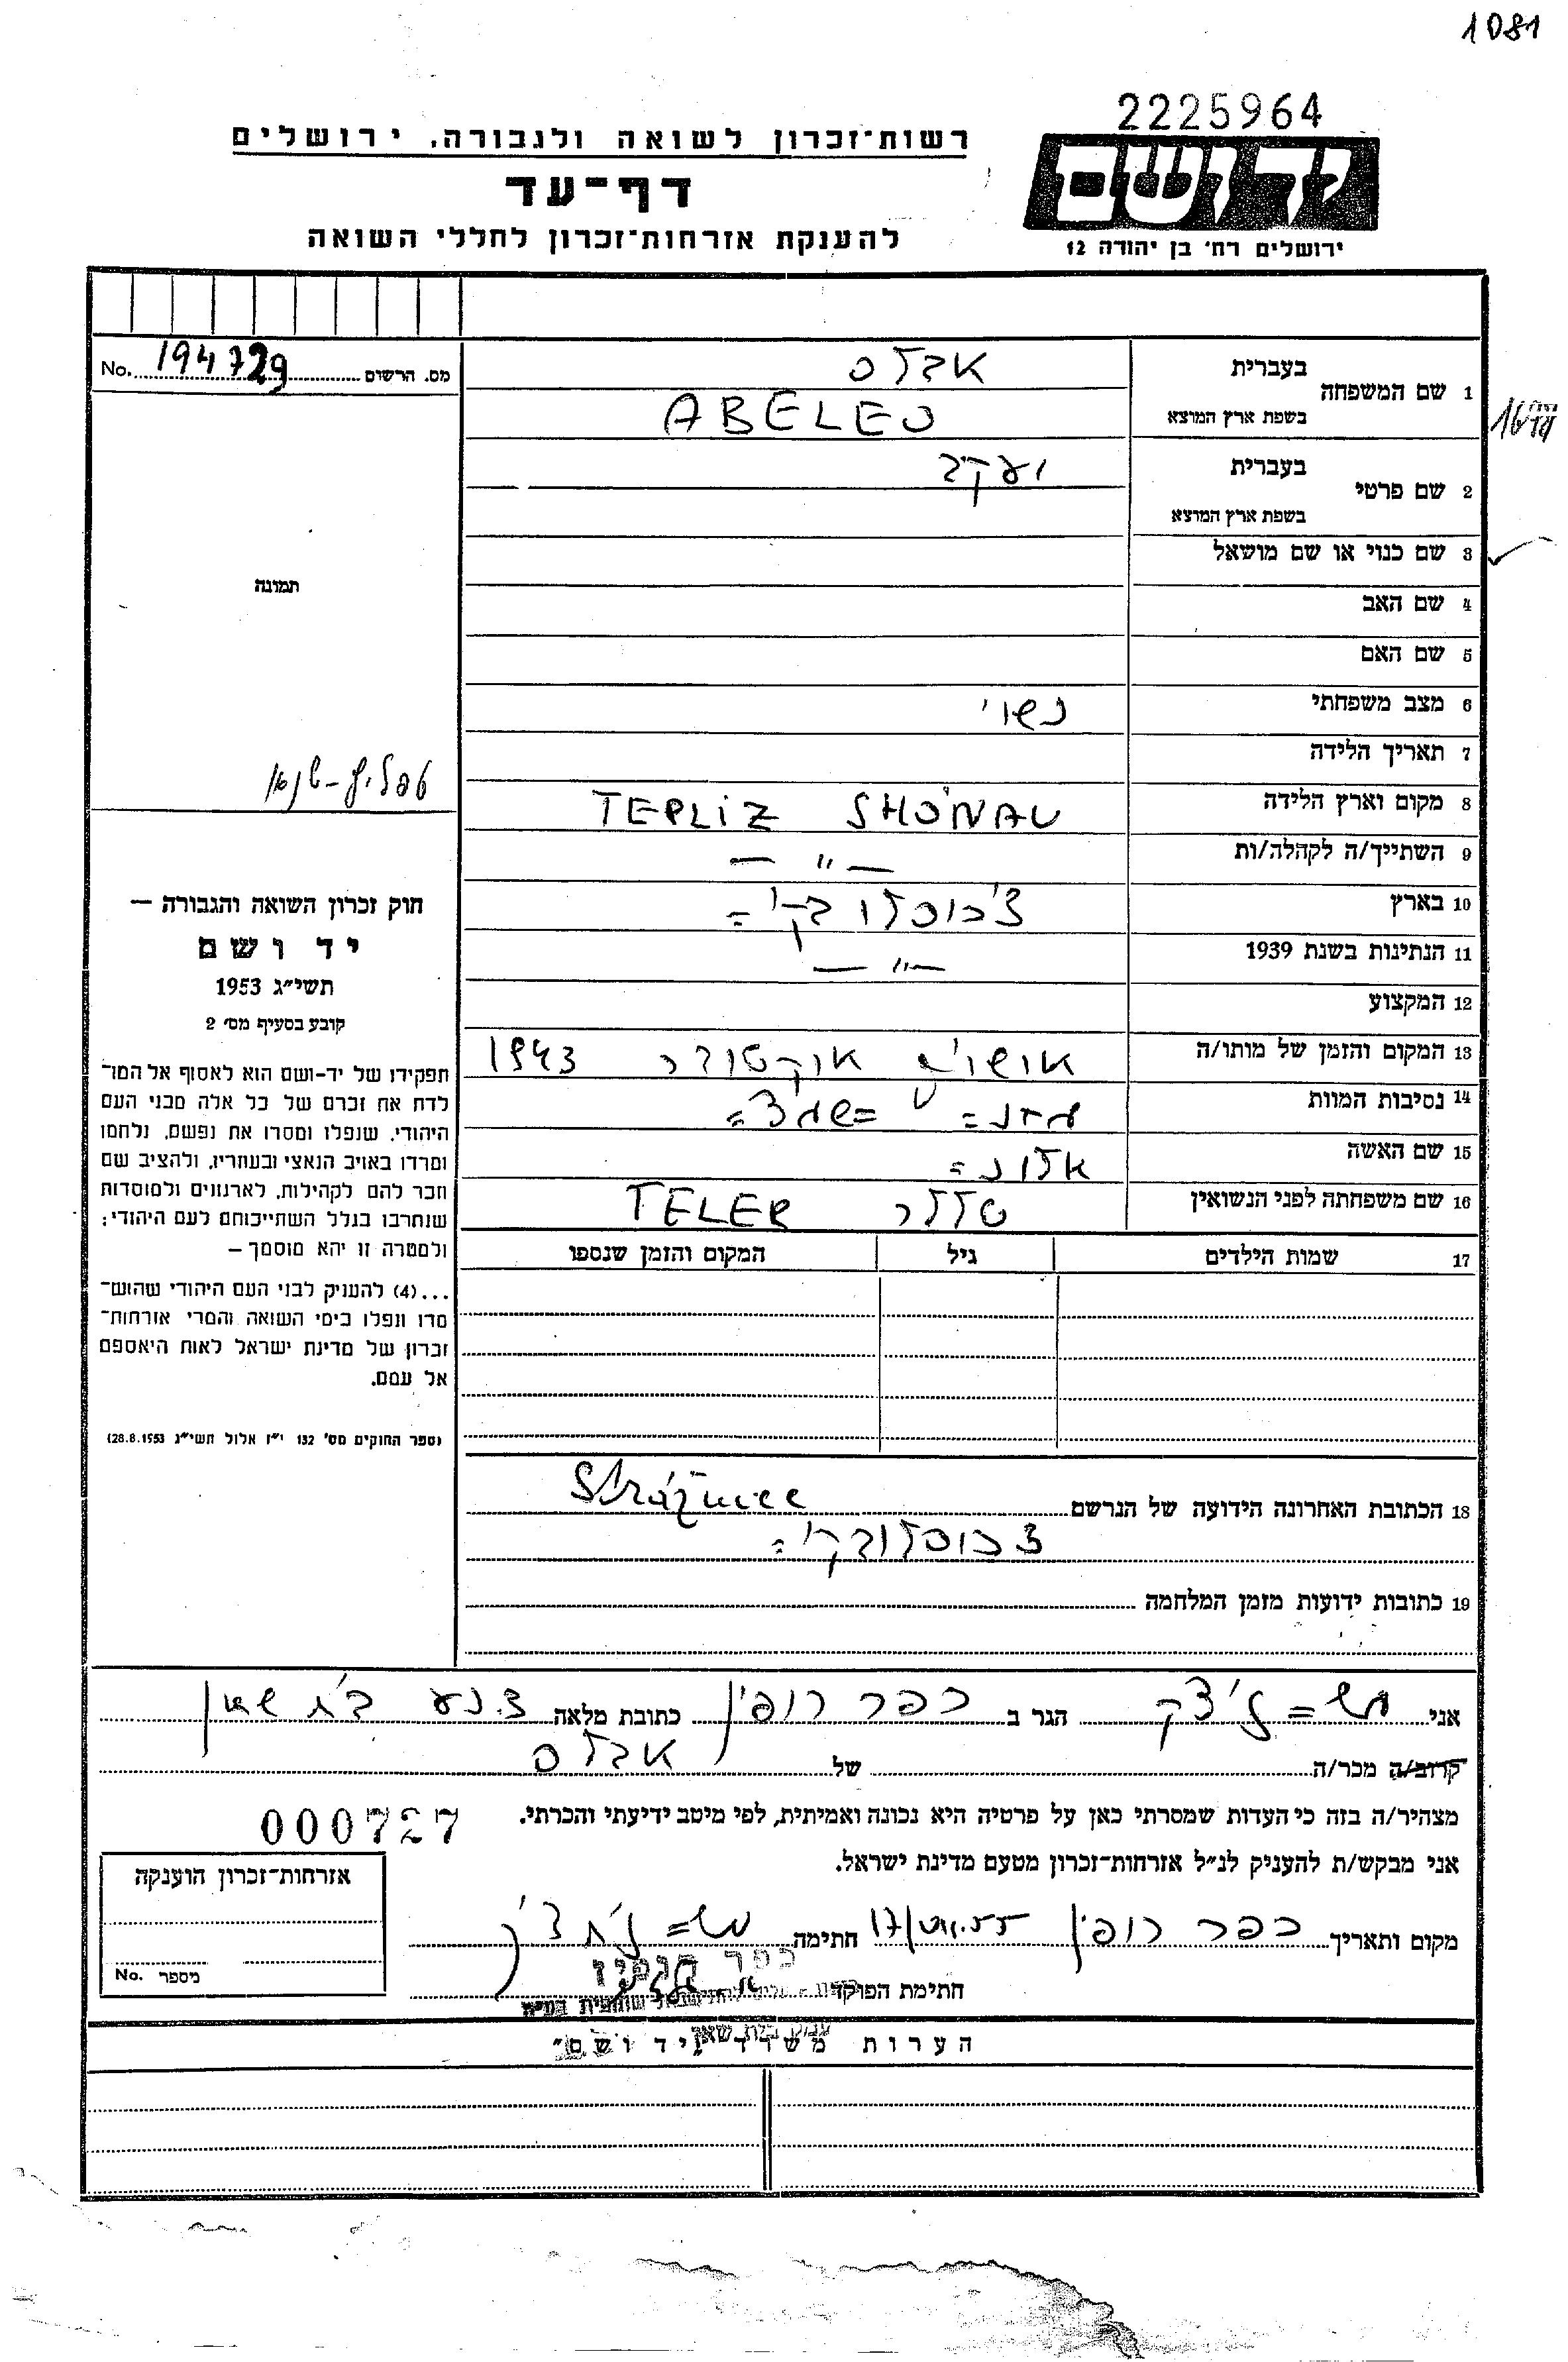 1081
2225964
רשות-זכרון לשואה ולגבורה, ירושלים
יד ושם
דף-עד
להענקת אזרחות-זכרון לחללי השואה
ירושלים רח' בן יהודה 12
מס. הרשום 194729 No.
1 שם המשפחה בעברית אבלס
בשפת ארץ המוצא ABELES
2 שם פרטי בעברית יעקב
בשפת ארץ המוצא
3 שם כנוי או שם מושאל
תמונה
4 שם האב
5 שם האם
6 מצב משפחתי נשוי
7 תאריך הלידה
טפליץ-שנאו
8 מקום וארץ הלידה TEPLIZ SHÖNAU
9 השתייך/ה לקהלה/ות — " —
10 בארץ צ'כוסלובקיה
11 הנתינות בשנת 1939 — " —
12 המקצוע
13 המקום והזמן של מותו/ה אושויץ אוקטובר 1943
14 נסיבות המוות
15 שם האשה
16 שם משפחתה לפני הנשואין טלר TELER
17 שמות הילדים גיל המקום והזמן שנספו
חוק זכרון השואה והגבורה —
יד ושם
תשי"ג 1953
קובע בסעיף מס' 2
תפקידו של יד-ושם הוא לאסוף אל המו-
לדת את זכרם של כל אלה מבני העם
היהודי, שנפלו ומסרו את נפשם, נלחמו
ומרדו באויב הנאצי ובעוזריו, ולהציב שם
וזכר להם לקהילות, לארגונים ולמוסדות
שנחרבו בגלל השתייכותם לעם היהודי;
ולמטרה זו יהא מוסמך —
...(4) להעניק לבני העם היהודי שהוש-
מדו ונפלו בימי השואה והמרי אזרחות-
זכרון של מדינת ישראל לאות היאספם
אל עמם.
(ספר החוקים מס' 132 י"ז אלול תשי"ג 28.8.1953)
18 הכתובת האחרונה הידועה של הנרשם Strážnice
צכוסלובקיה
19 כתובות ידועות מזמן המלחמה
אני משה הגר ב כפר רופין כתובת מלאה ד.נ.ע בית שאן
קרוב/ה מכר/ה של אבלס
מצהיר/ה בזה כי העדות שמסרתי כאן על פרטיה היא נכונה ואמיתית, לפי מיטב ידיעתי והכרתי.
000727
אני מבקש/ת להעניק לנ"ל אזרחות-זכרון מטעם מדינת ישראל.
אזרחות-זכרון הוענקה
מספר No.
מקום ותאריך כפר רופין חתימה משה
כפר רופין
חתימת הפוקד
עמק בית שאן
הערות משרד "יד ושם"